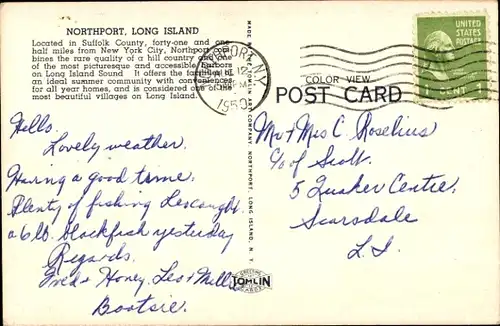 NORTHPORT, LONG ISLAND
Located in Suffolk County, forty-one and one
half miles from New York City, Northport com-
bines the rare quality of a hill country and one
of the most picturesque and accessible harbors
on Long Island Sound. It offers the facilities of
an ideal summer community with conveniences
for all year homes, and is considered one of the
most beautiful villages on Long Island.
Hello.
Lovely weather.
Having a good time.
Plenty of fishing Les caught
a 6 lb. blackfish yesterday
Regards.
Fred + Honey. Les + Mill
Bootsie.
MADE BY TOMLIN ART COMPANY, NORTHPORT, LONG ISLAND, N. Y.
GREETING
TOMLIN
CARDS
NORTHPORT, N.Y.
12
PM
1950
COLOR VIEW
POST CARD
UNITED
STATES
POSTAGE
1 CENT
Mr + Mrs C. Roselius
c/o of Scott.
5 Quaker Centre.
Scarsdale
L. I.